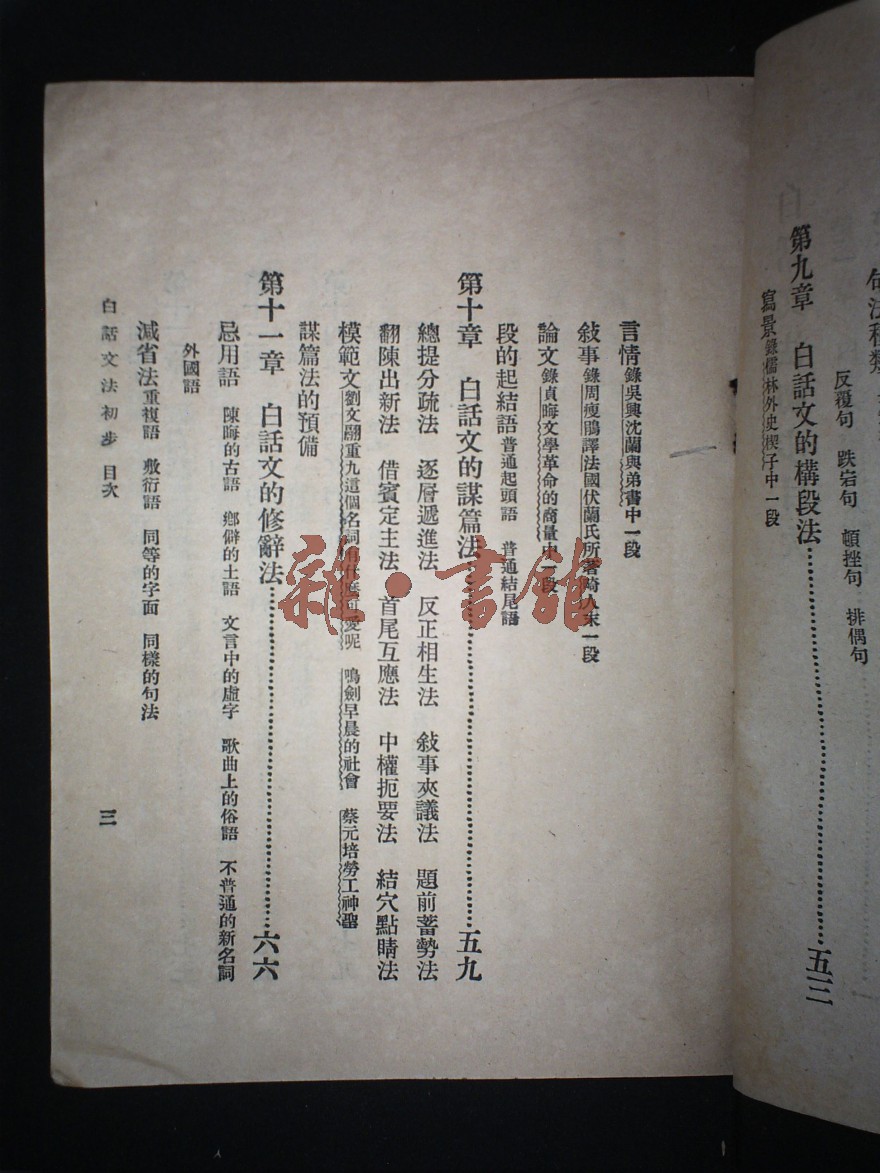 反覆句 跌宕句 頓挫句 排偶句
第九章 白話文的構段法……五三
寫景錄儒林外史楔子中一段
言情錄吳興沈蘭與弟書中一段
敍事錄周瘦鵑譯法國伏蘭氏所著畸人末一段
論文錄貞晦文學革命的商量中一段
段的起結語普通起頭語 普通結尾語
第十章 白話文的謀篇法……五九
總提分疏法 逐層遞進法 反正相生法 敍事夾議法 題前蓄勢法
翻陳出新法 借賓定主法 首尾互應法 中權扼要法 結穴點睛法
模範文劉文翮重九這個名詞 可愛呢 鳴劍早晨的社會 蔡元培勞工神聖
謀篇法的預備
第十一章 白話文的修辭法……六六
忌用語 陳晦的古語 鄉僻的土語 文言中的虛字 歌曲上的俗語 不普通的新名詞
外國語
減省法重複語 敷衍語 同等的字面 同樣的句法
白話文法初步 目次 三
雜·書館